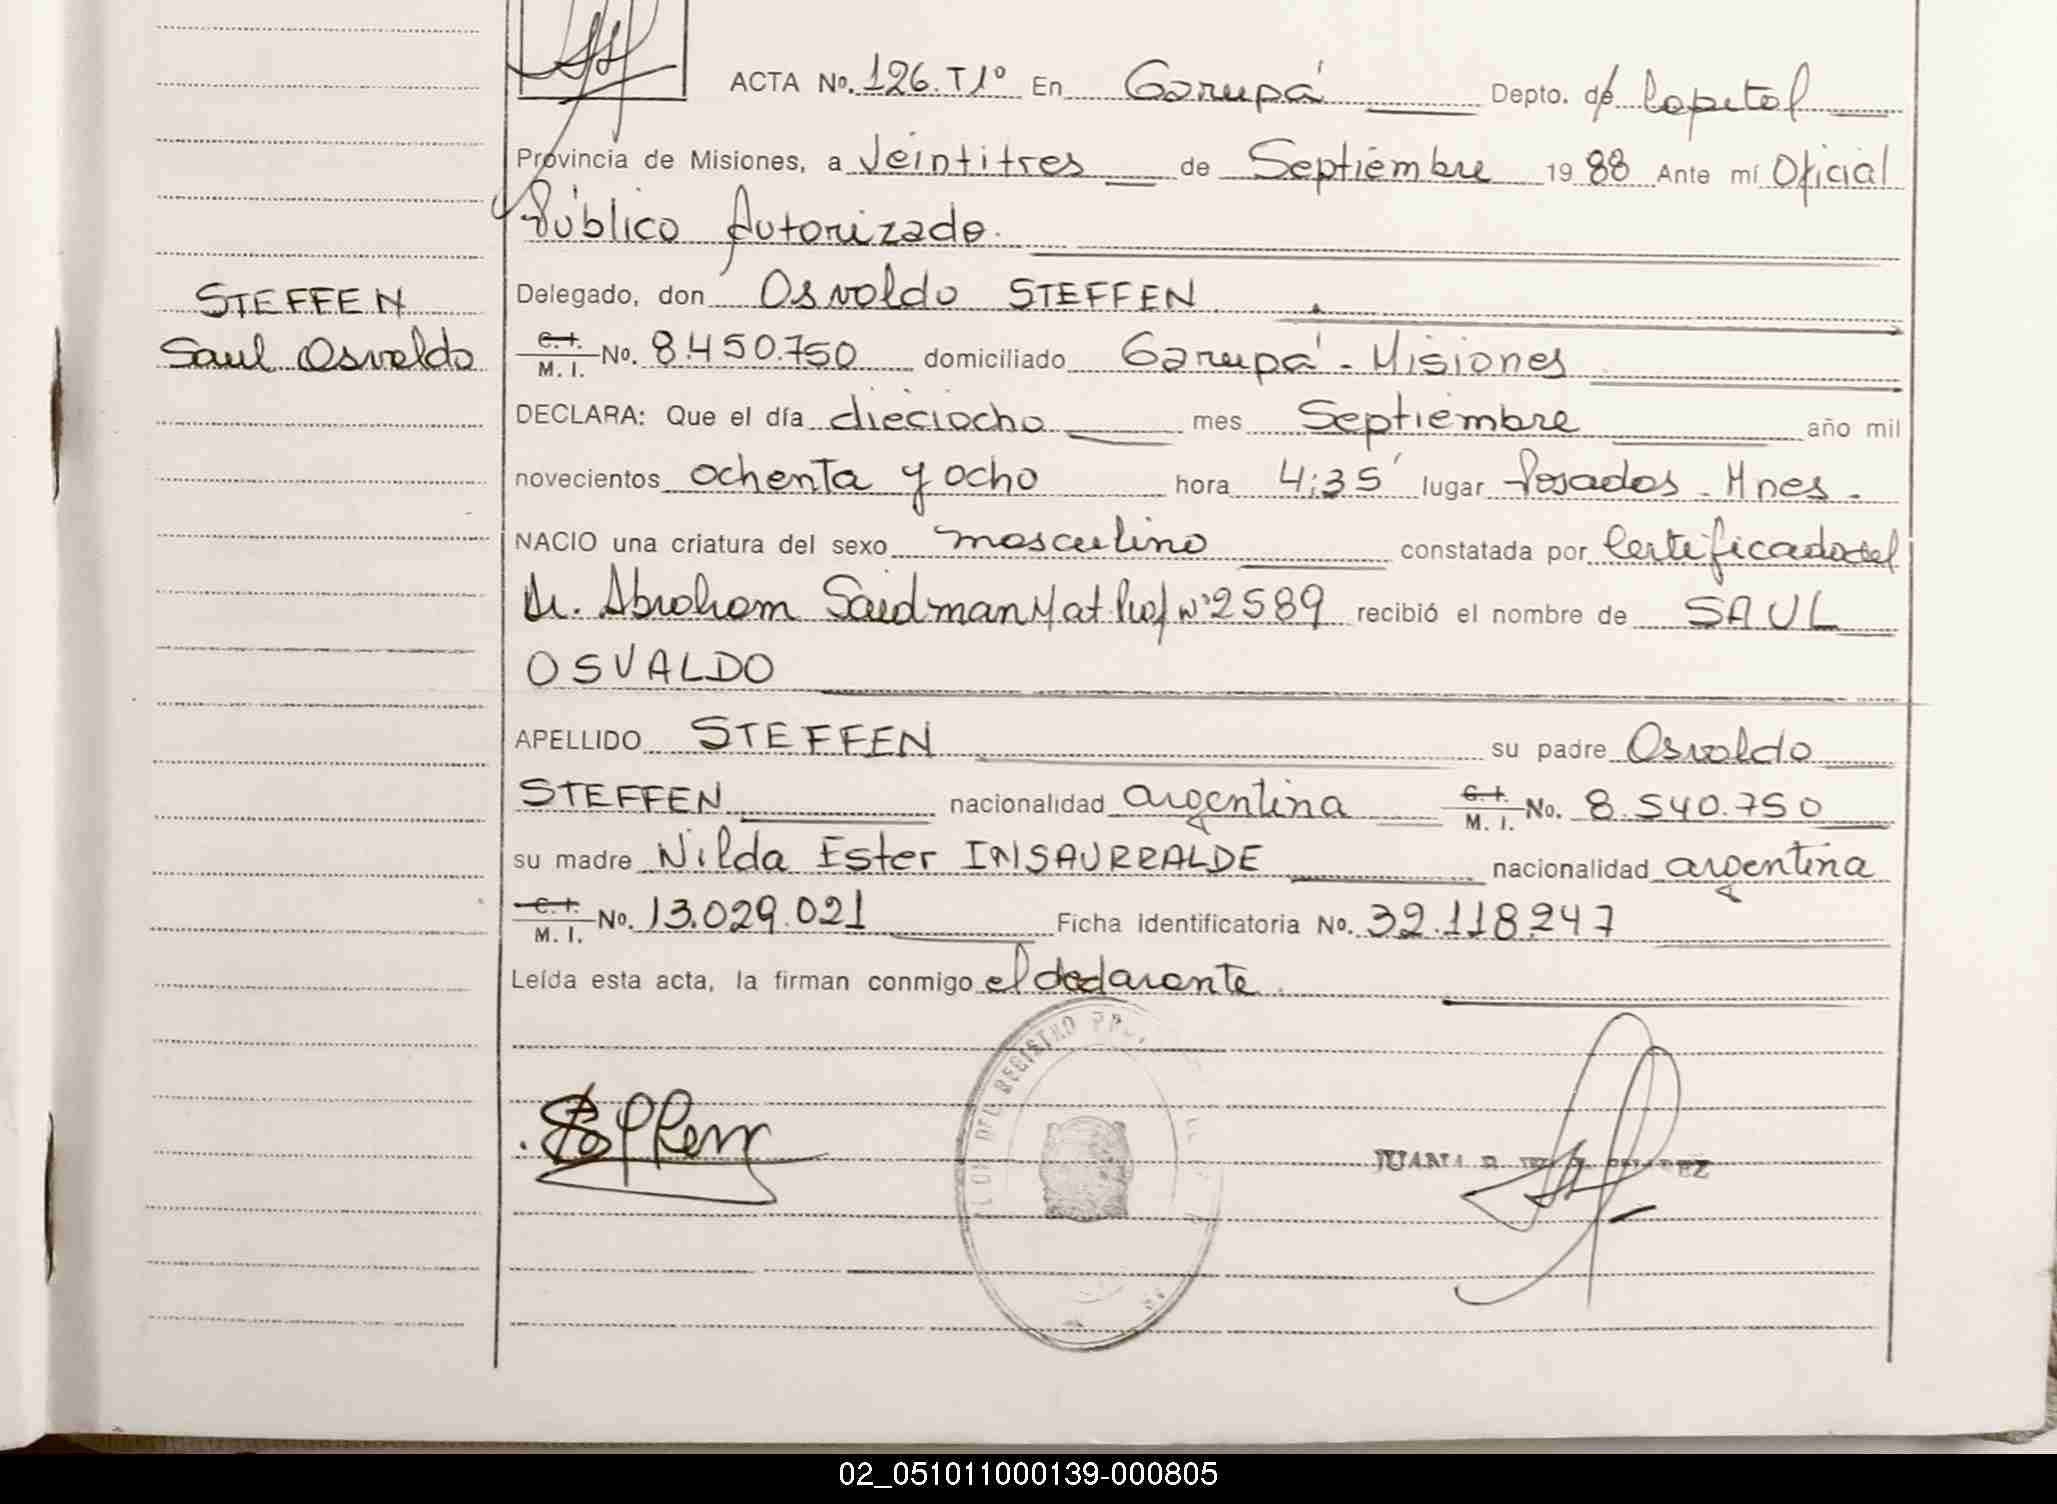 ACTA No. 126. T1º En Garupá Depto. de Capital
Provincia de Misiones, a Veintitres de Septiembre 1988 Ante mí Oficial
Público Autorizado.
STEFFEN
Delegado, don Osvaldo STEFFEN
Saul Osvaldo
C. I. M. I. No. 8.450.750 domiciliado Garupá - Misiones
DECLARA: Que el día dieciocho mes Septiembre año mil
novecientos ochenta y ocho hora 4:35' lugar Posadas - Mnes.
NACIO una criatura del sexo masculino constatada por Certificado del
Dr. Abraham Saidman Mat. Prof Nº 2589 recibió el nombre de SAUL
OSVALDO
APELLIDO STEFFEN su padre Osvaldo
STEFFEN nacionalidad argentina C. I. M. I. No. 8.540.750
su madre Nilda Ester INSAURRALDE nacionalidad argentina
C. I. M. I. No. 13.029.021 Ficha identificatoria No. 32.118.247
Leída esta acta, la firman conmigo el declarante.
DEL REGISTRO
Steffen
JUANA
02_051011000139-000805